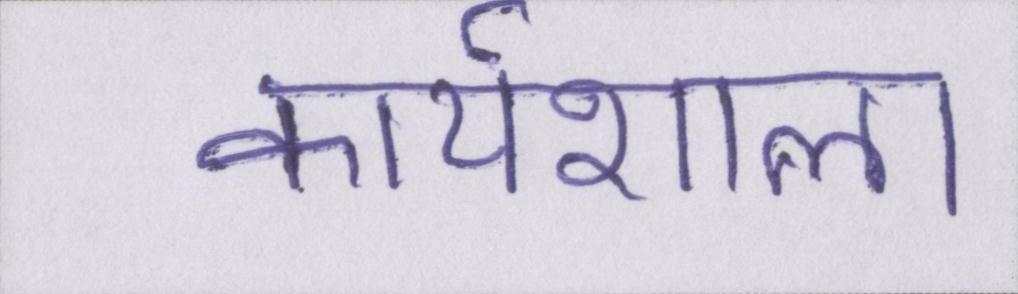 कार्यशाला